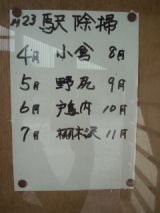 H23 駅除掃
4月 小倉 8月
5月 野尻 9月
6月 10月
7月 11月